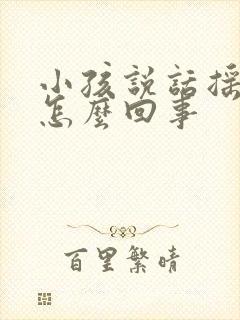 小孩説話搖
怎麼回事
百里繁晴